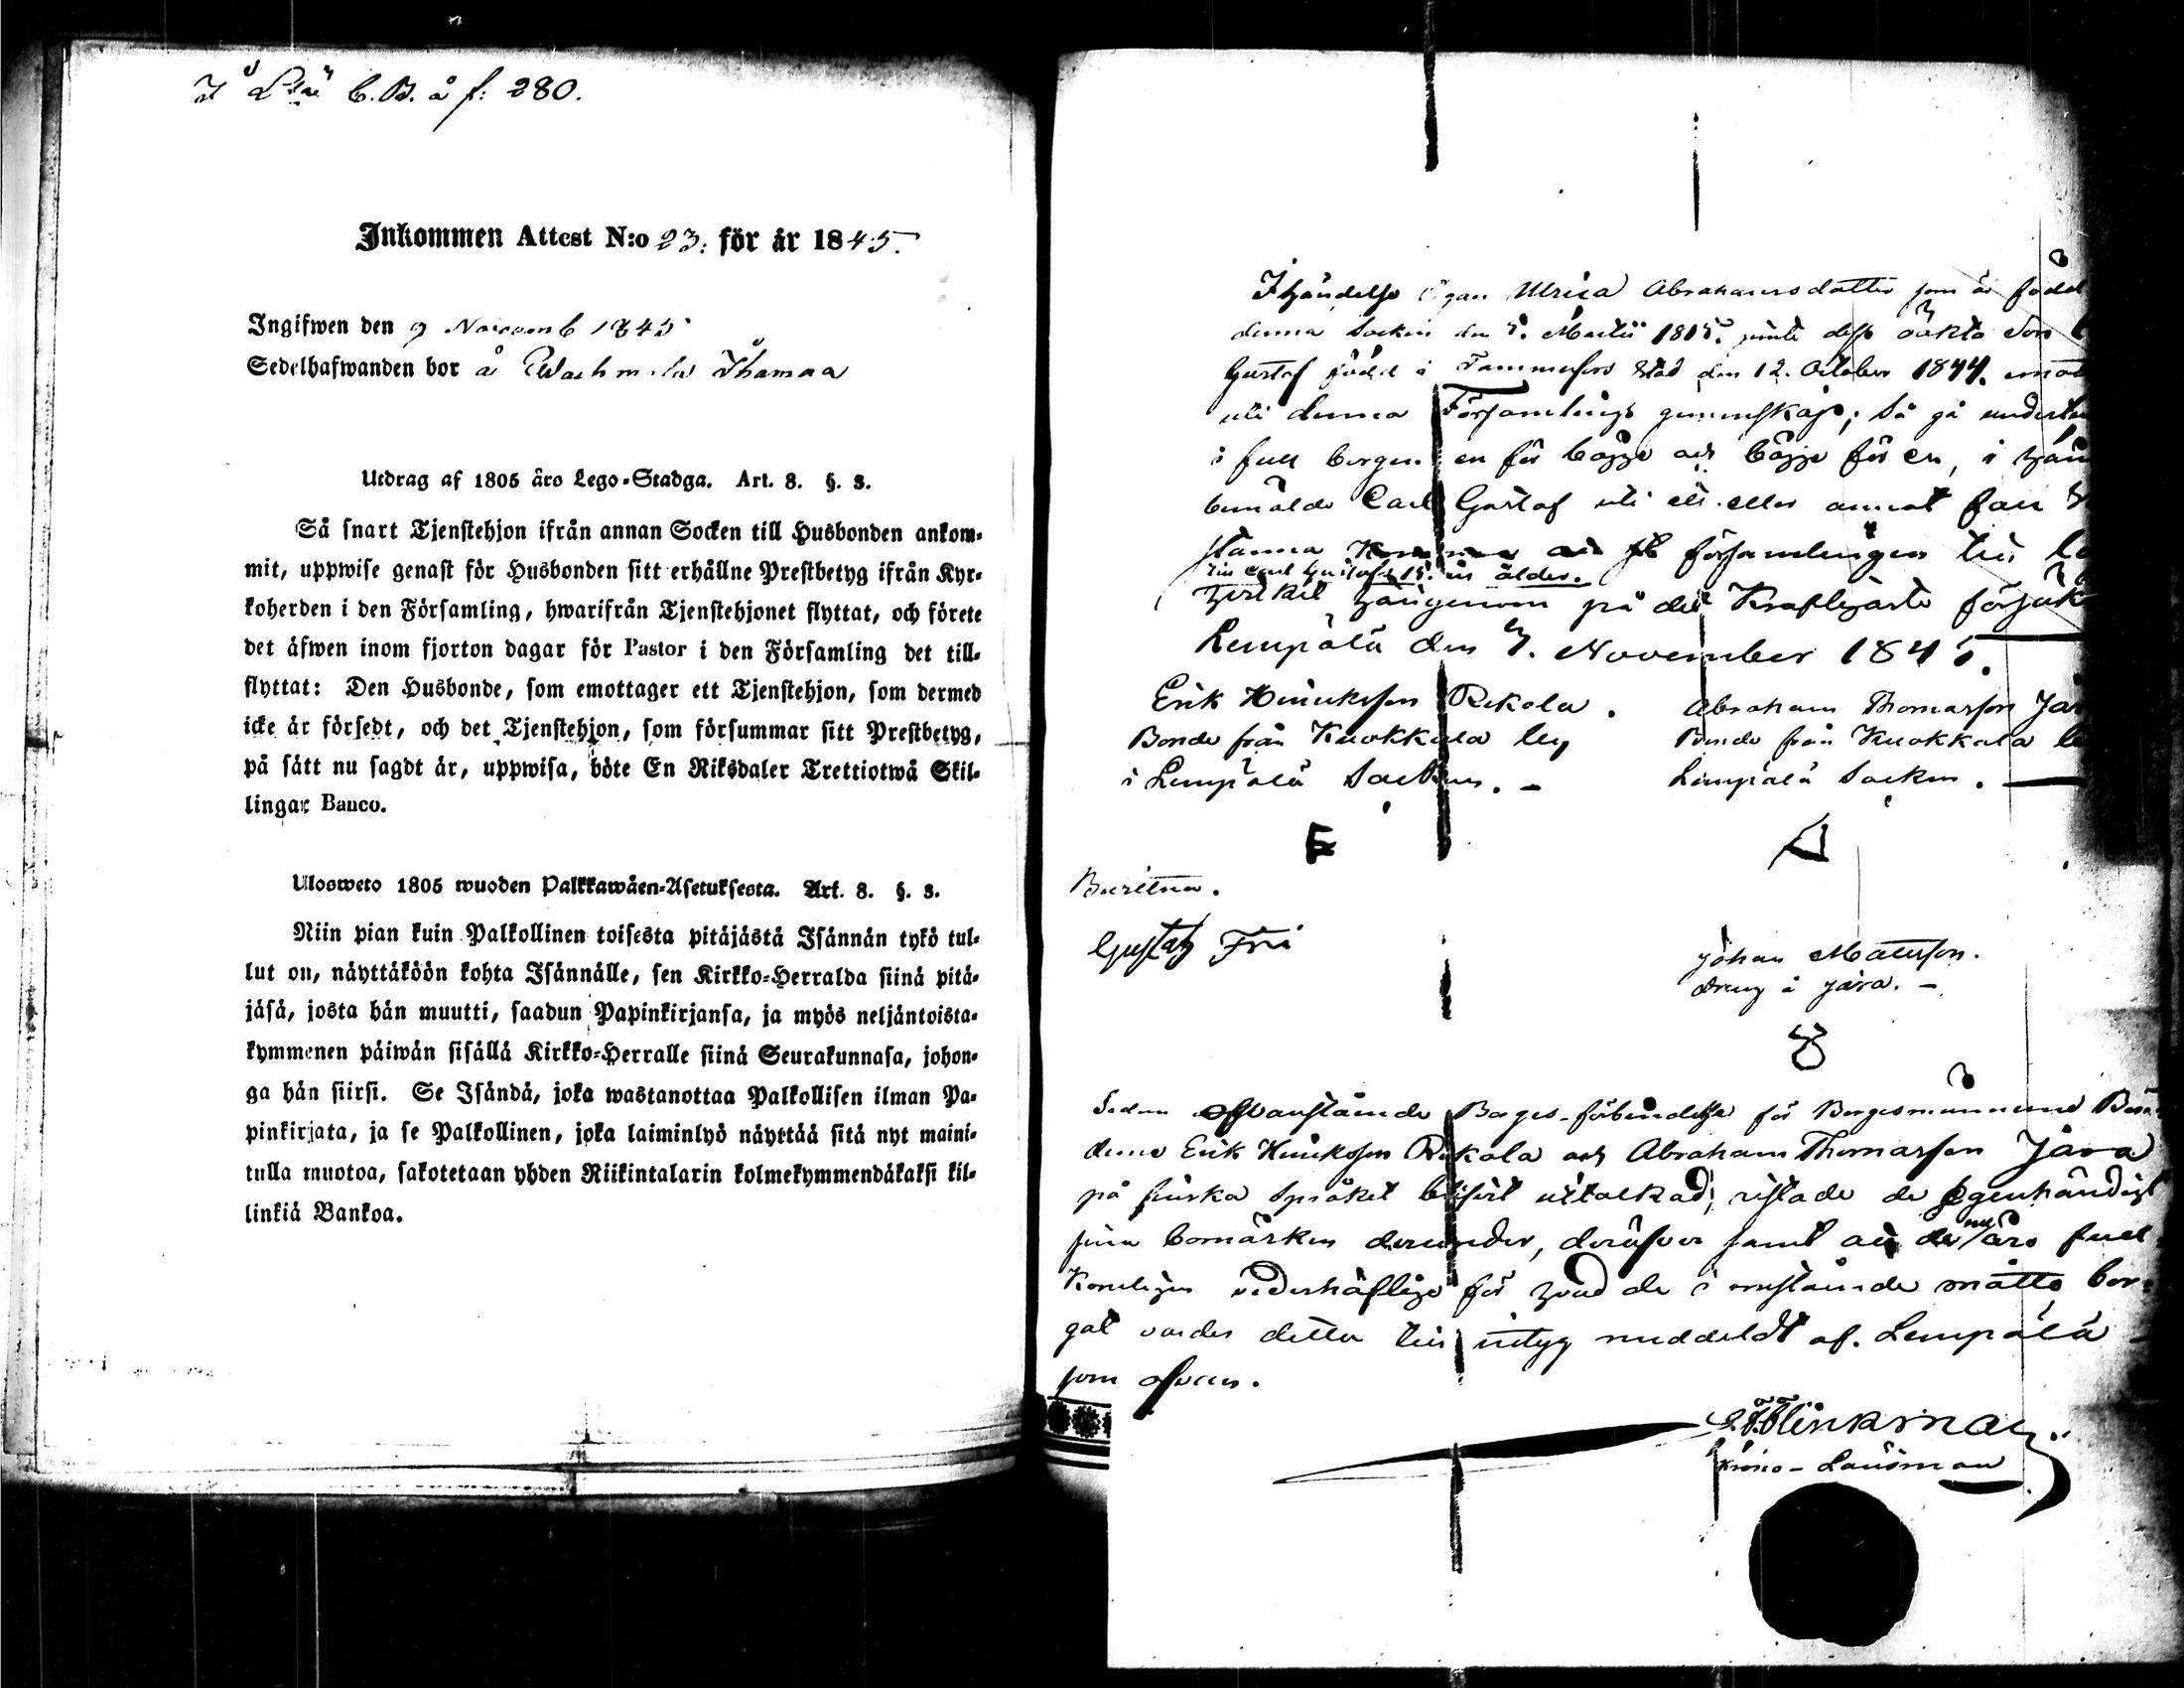 C. B. å f: 280.
Inkommen Attest N:o 23. för år 1845.
Ingifwen den 9 Novemb 1845
Sedelhafwanden bor å
Utdrag af 1805 åro Lego-Stadga. Art. 8. §. 3.
Så snart Tjenstehjon ifrån annan Socken till Husbonden ankom-
mit, uppwise genast för Husbonden sitt erhållne Prestbetyg ifrån Kyr-
koherden i den Församling, hwarifrån Tjenstehjonet flyttat, och förete
det äfwen inom fjorton dagar för Pastor i den Församling det till-
flyttat: Den Husbonde, som emottager ett Tjenstehjon, som dermed
icke är försedt, och det Tjenstehjon, som försummar sitt Prestbetyg,
på sätt nu sagdt är, uppwisa, böte En Riksdaler Trettiotwå Skil-
lingar Banco.
Ulosweto 1805 wuoden Palkkawäen-Asetuksesta. Art. 8. §. 3.
Niin pian kuin Palkollinen toisesta pitäjästä Isännän tykö tul-
lut on, näyttäköön kohta Isännälle, sen Kirkko-Herralda siinä pitä-
jäsä, josta hän muutti, saadun Papinkirjansa, ja myös neljäntoista-
kymmenen päiwän sisällä Kirkko-Herralle siinä Seurakunnasa, johon-
ga hän siirsi. Se Isändä, joka wastanottaa Palkollisen ilman Pa-
pinkirjata, ja se Palkollinen, joka laiminlyö näyttää sitä nyt maini-
tulla muotoa, sakotetaan yhden Riikintalarin kolmekymmendäkaksi kil-
linkiä Bankoa.
I händelse Pigan Ulrica Abrahamsdotter som är född
denna Socken den 5. Martii 1815. jemte dess oäkta Son
Gustaf född i Tammerfors Stad den 12. October 1844.
uti denna Församlings gemenskap; Så gå
i full borgen en för bägge och bägge för en, i
bemälde Carl Gustaf uti ett eller annat fall
stanna att församlingen till
till Carl Gustafs 15. års ålder.
hvilket härigenom på det Kraftigaste
Lempälä den 7. November 1845.
Erik Henriksson Rekola. Abraham Thomasson
Bonde från Kuokkala by Bonde från Kuokkala
i Lempälä Socken. – Lempälä Socken.
Bevittna.
Gustaf Fri
Johan Matsson.
Dreng å Jära. –
Sedan ofvanstående Borges-förbindelse för Borgesmännerne
derne Erik Henriksson Rekola och Abraham Thomasson Jära
på finska Språket blifvit uttolkad, ristade de egenhändigt
sina bomärken derunder, deröfver samt att de nu äro full-
komligen vederhäftige för hvad de i omstående måtto bor-
gat varder detta till intyg meddeldt af. Lempälä
som ofvan.
Krono-Länsman